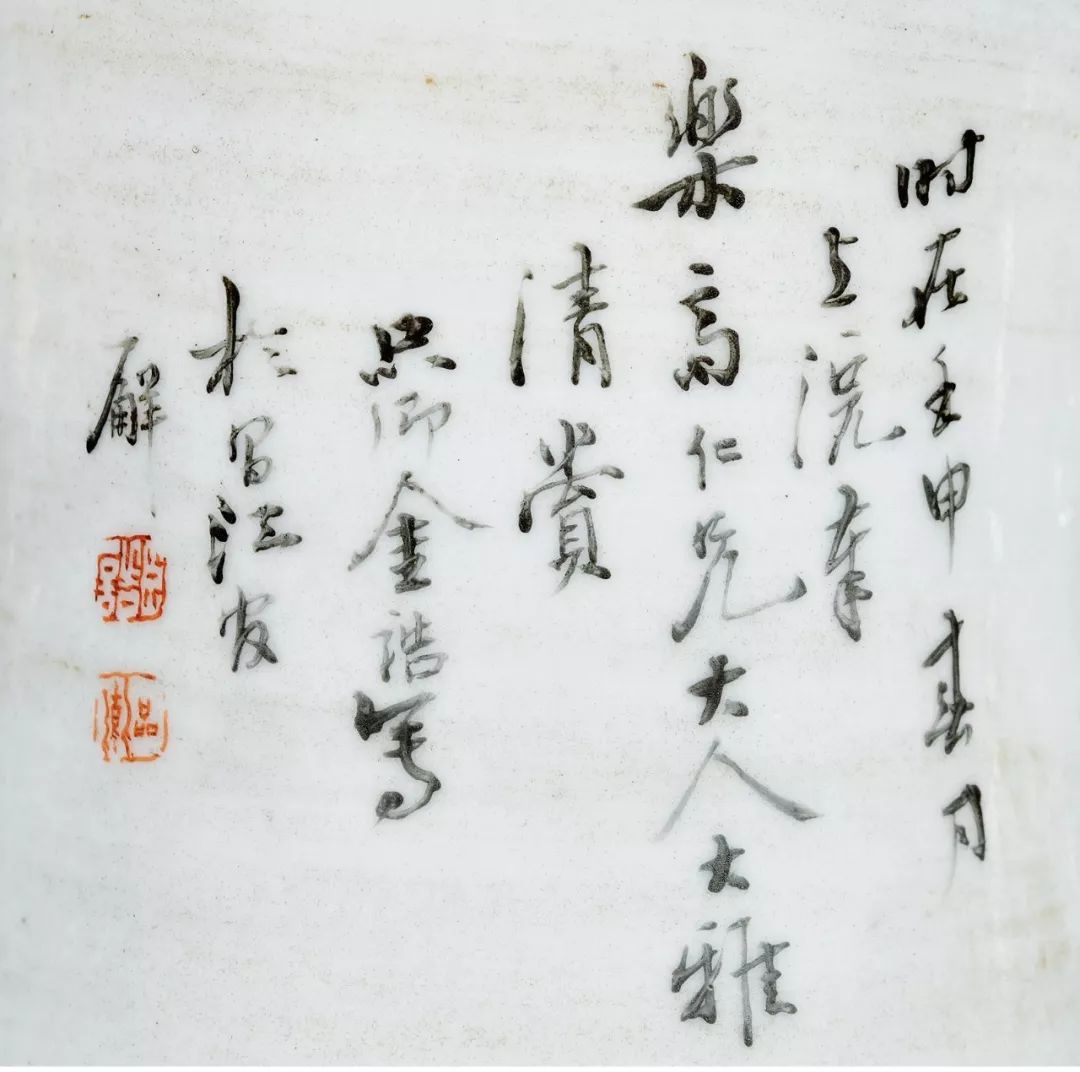 时在壬申春月
上浣奉
樂高仁兄大人大雅
清賞
品卿金誥寫
於昌江官
廨